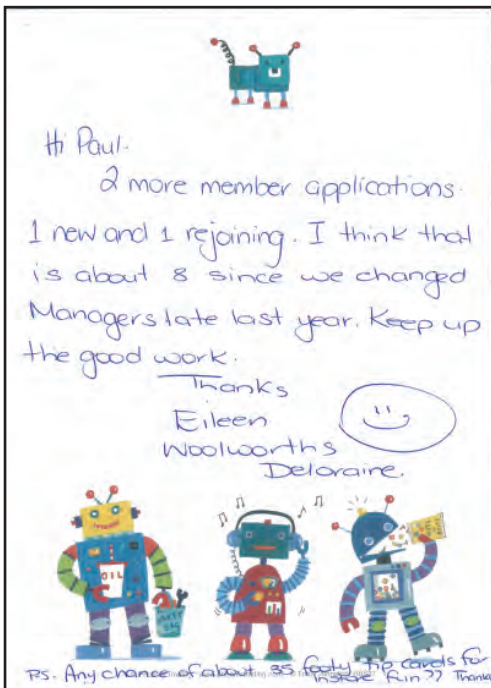 Hi Paul.
2 more member applications.
1 new and 1 rejoining. I think that
is about 8 since we changed
Managers late last year. Keep up
the good work.
Thanks
Eileen
Woolworths
Deloraine.
OIL
PS. Any chance of about 35 footy tip cards for
instore fun?? Thanks